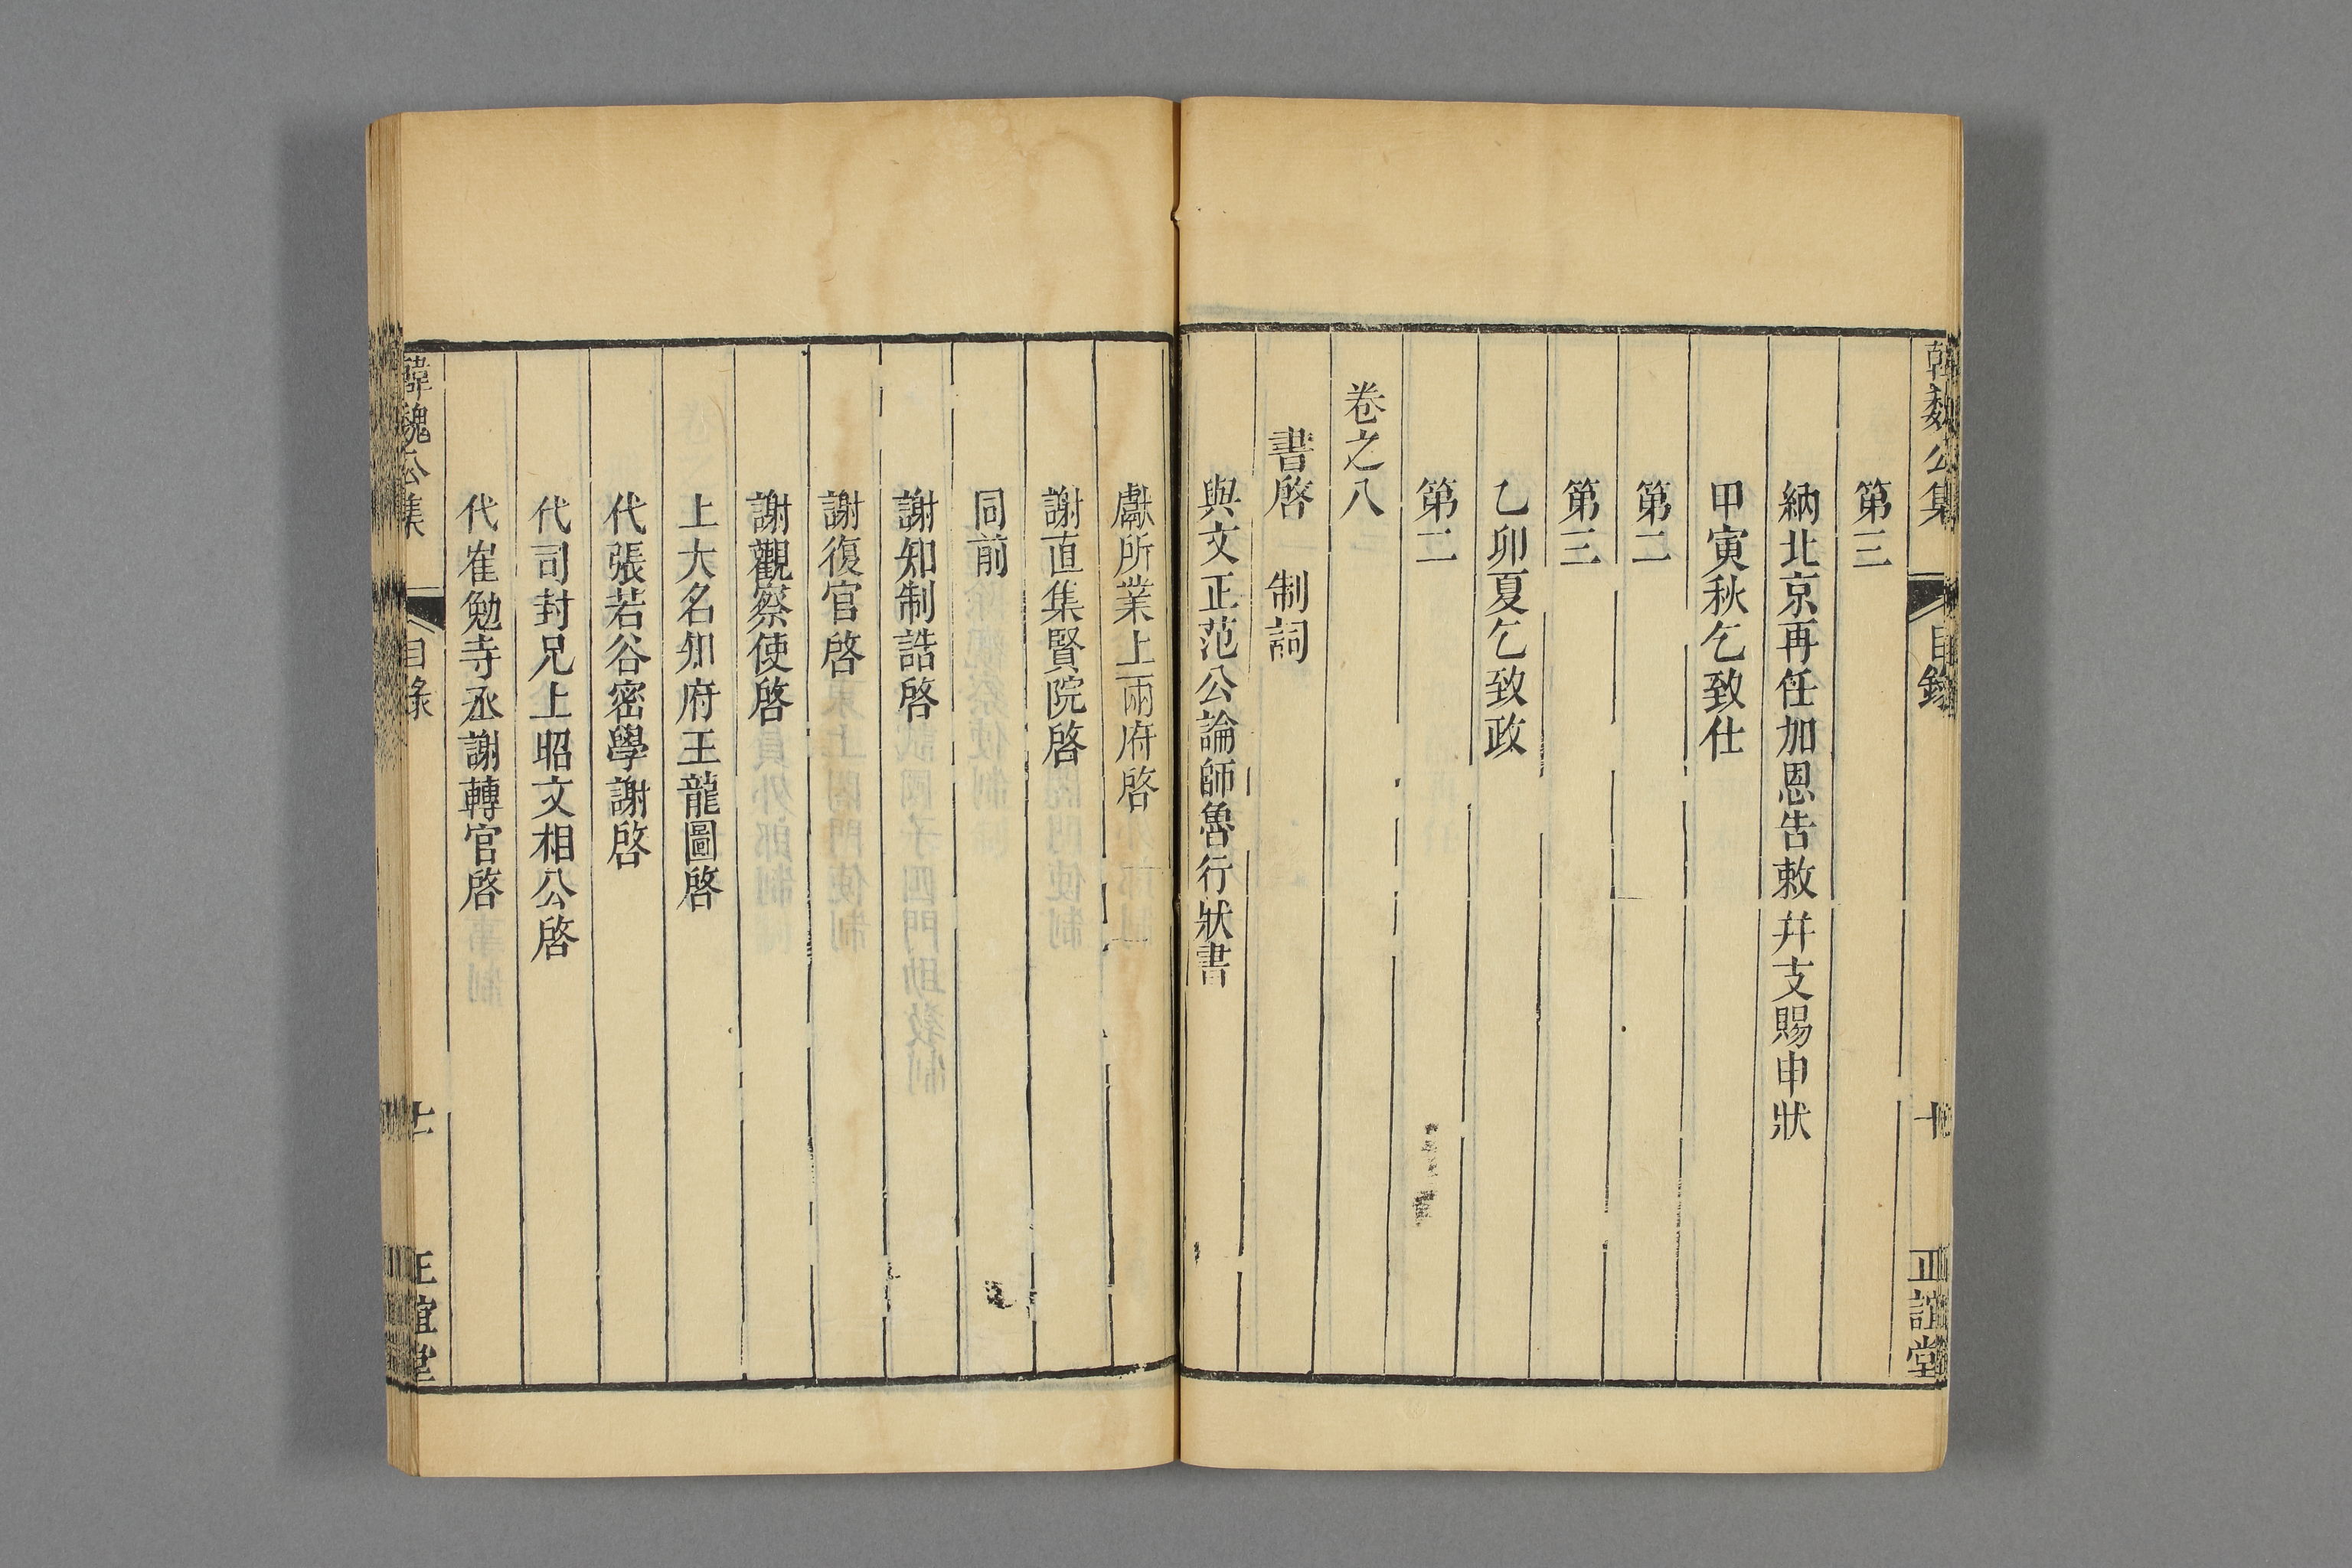 韓魏公集 目錄 十 正誼堂
第三
納北京再任加恩告敕并支賜申狀
甲寅秋乞致仕
第二
第三
乙卯夏乞致政
第二
卷之八
書啓 制詞
與文正范公論師魯行狀書
獻所業上兩府啓
謝直集賢院啓
同前
謝知制誥啓
謝復官啓
謝觀察使啓
上大名知府王龍圖啓
代張若谷密學謝啓
代司封兄上昭文相公啓
代崔勉寺丞謝轉官啓
韓魏公集 目錄 十一 正誼堂